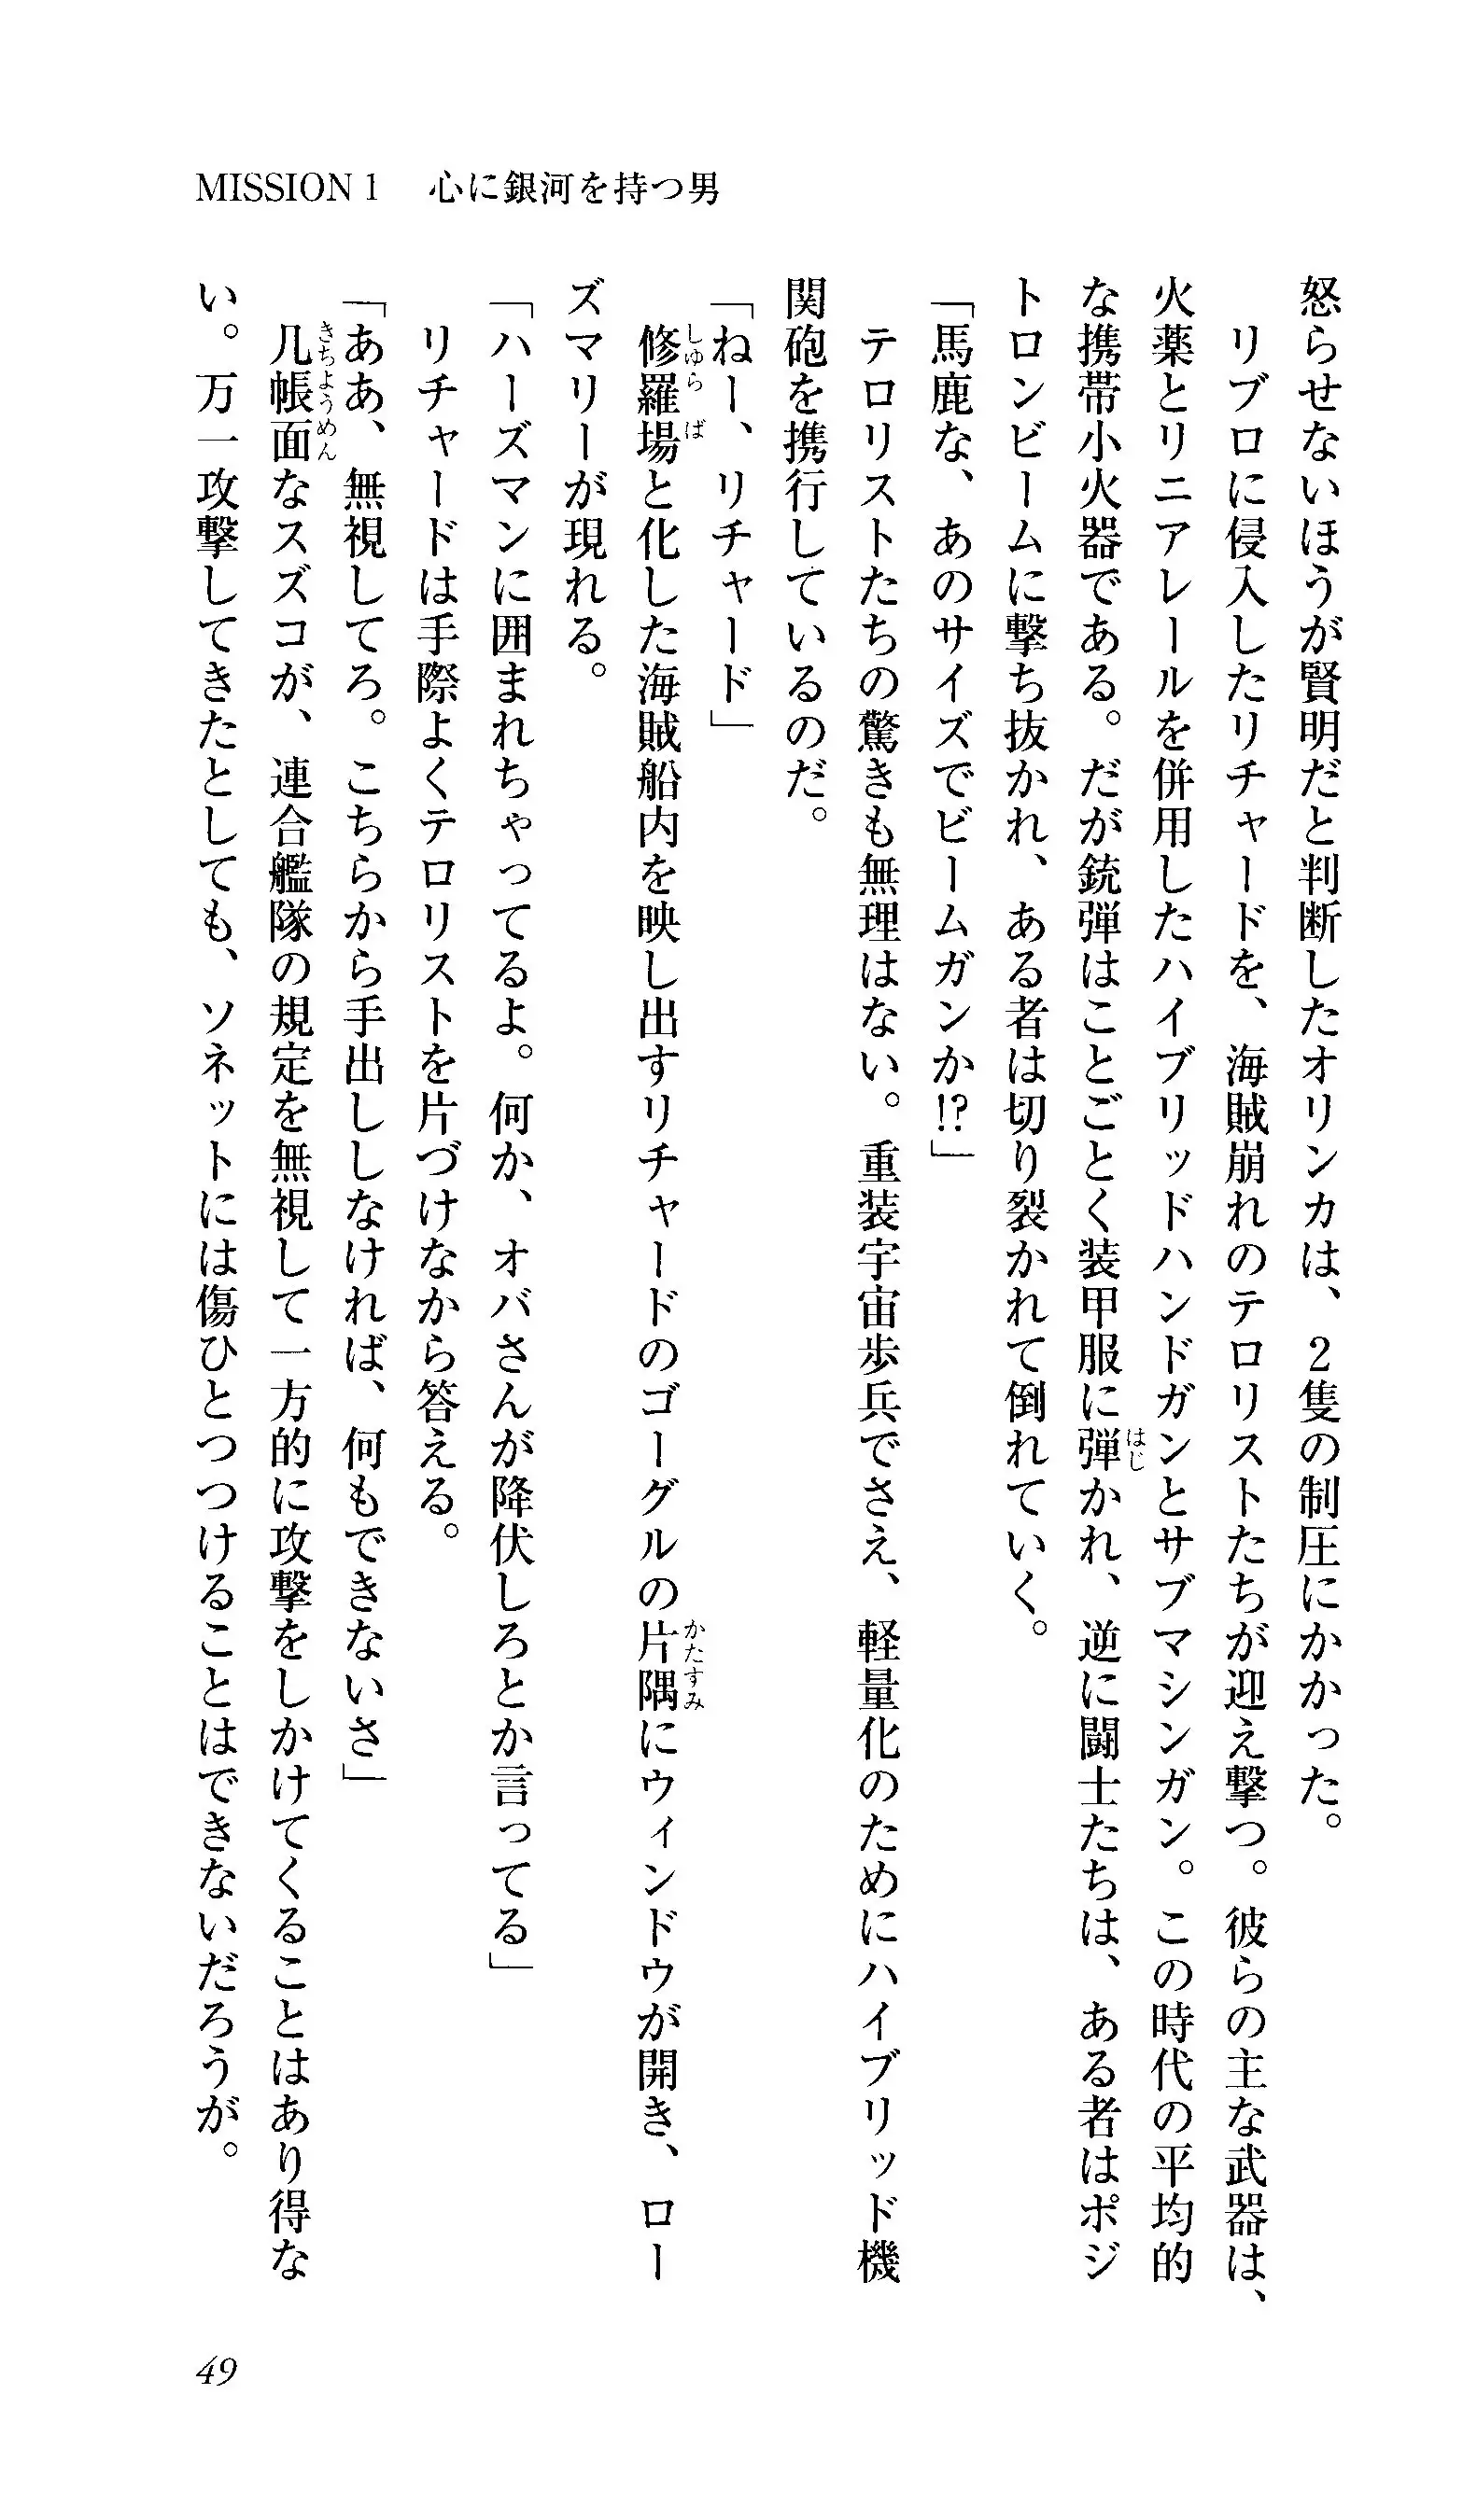 MISSION 1　心に銀河を持つ男
怒らせないほうが賢明だと判断したオリンカは、２隻の制圧にかかった。
　リブロに侵入したリチャードを、海賊崩れのテロリストたちが迎え撃つ。彼らの主な武器は、
火薬とリニアレールを併用したハイブリッドハンドガンとサブマシンガン。この時代の平均的
な携帯小火器である。だが銃弾はことごとく装甲服に弾かれ、逆に闘士たちは、ある者はポジ
トロンビームに撃ち抜かれ、ある者は切り裂かれて倒れていく。
「馬鹿な、あのサイズでビームガンか!?」
　テロリストたちの驚きも無理はない。重装宇宙歩兵でさえ、軽量化のためにハイブリッド機
関砲を携行しているのだ。
「ねー、リチャード」
　修羅場と化した海賊船内を映し出すリチャードのゴーグルの片隅にウィンドウが開き、ロー
ズマリーが現れる。
「ハーズマンに囲まれちゃってるよ。何か、オバさんが降伏しろとか言ってる」
　リチャードは手際よくテロリストを片づけながら答える。
「ああ、無視してろ。こちらから手出ししなければ、何もできないさ」
　几帳面なスズコが、連合艦隊の規定を無視して一方的に攻撃をしかけてくることはあり得な
い。万一攻撃してきたとしても、ソネットには傷ひとつつけることはできないだろうが。
49